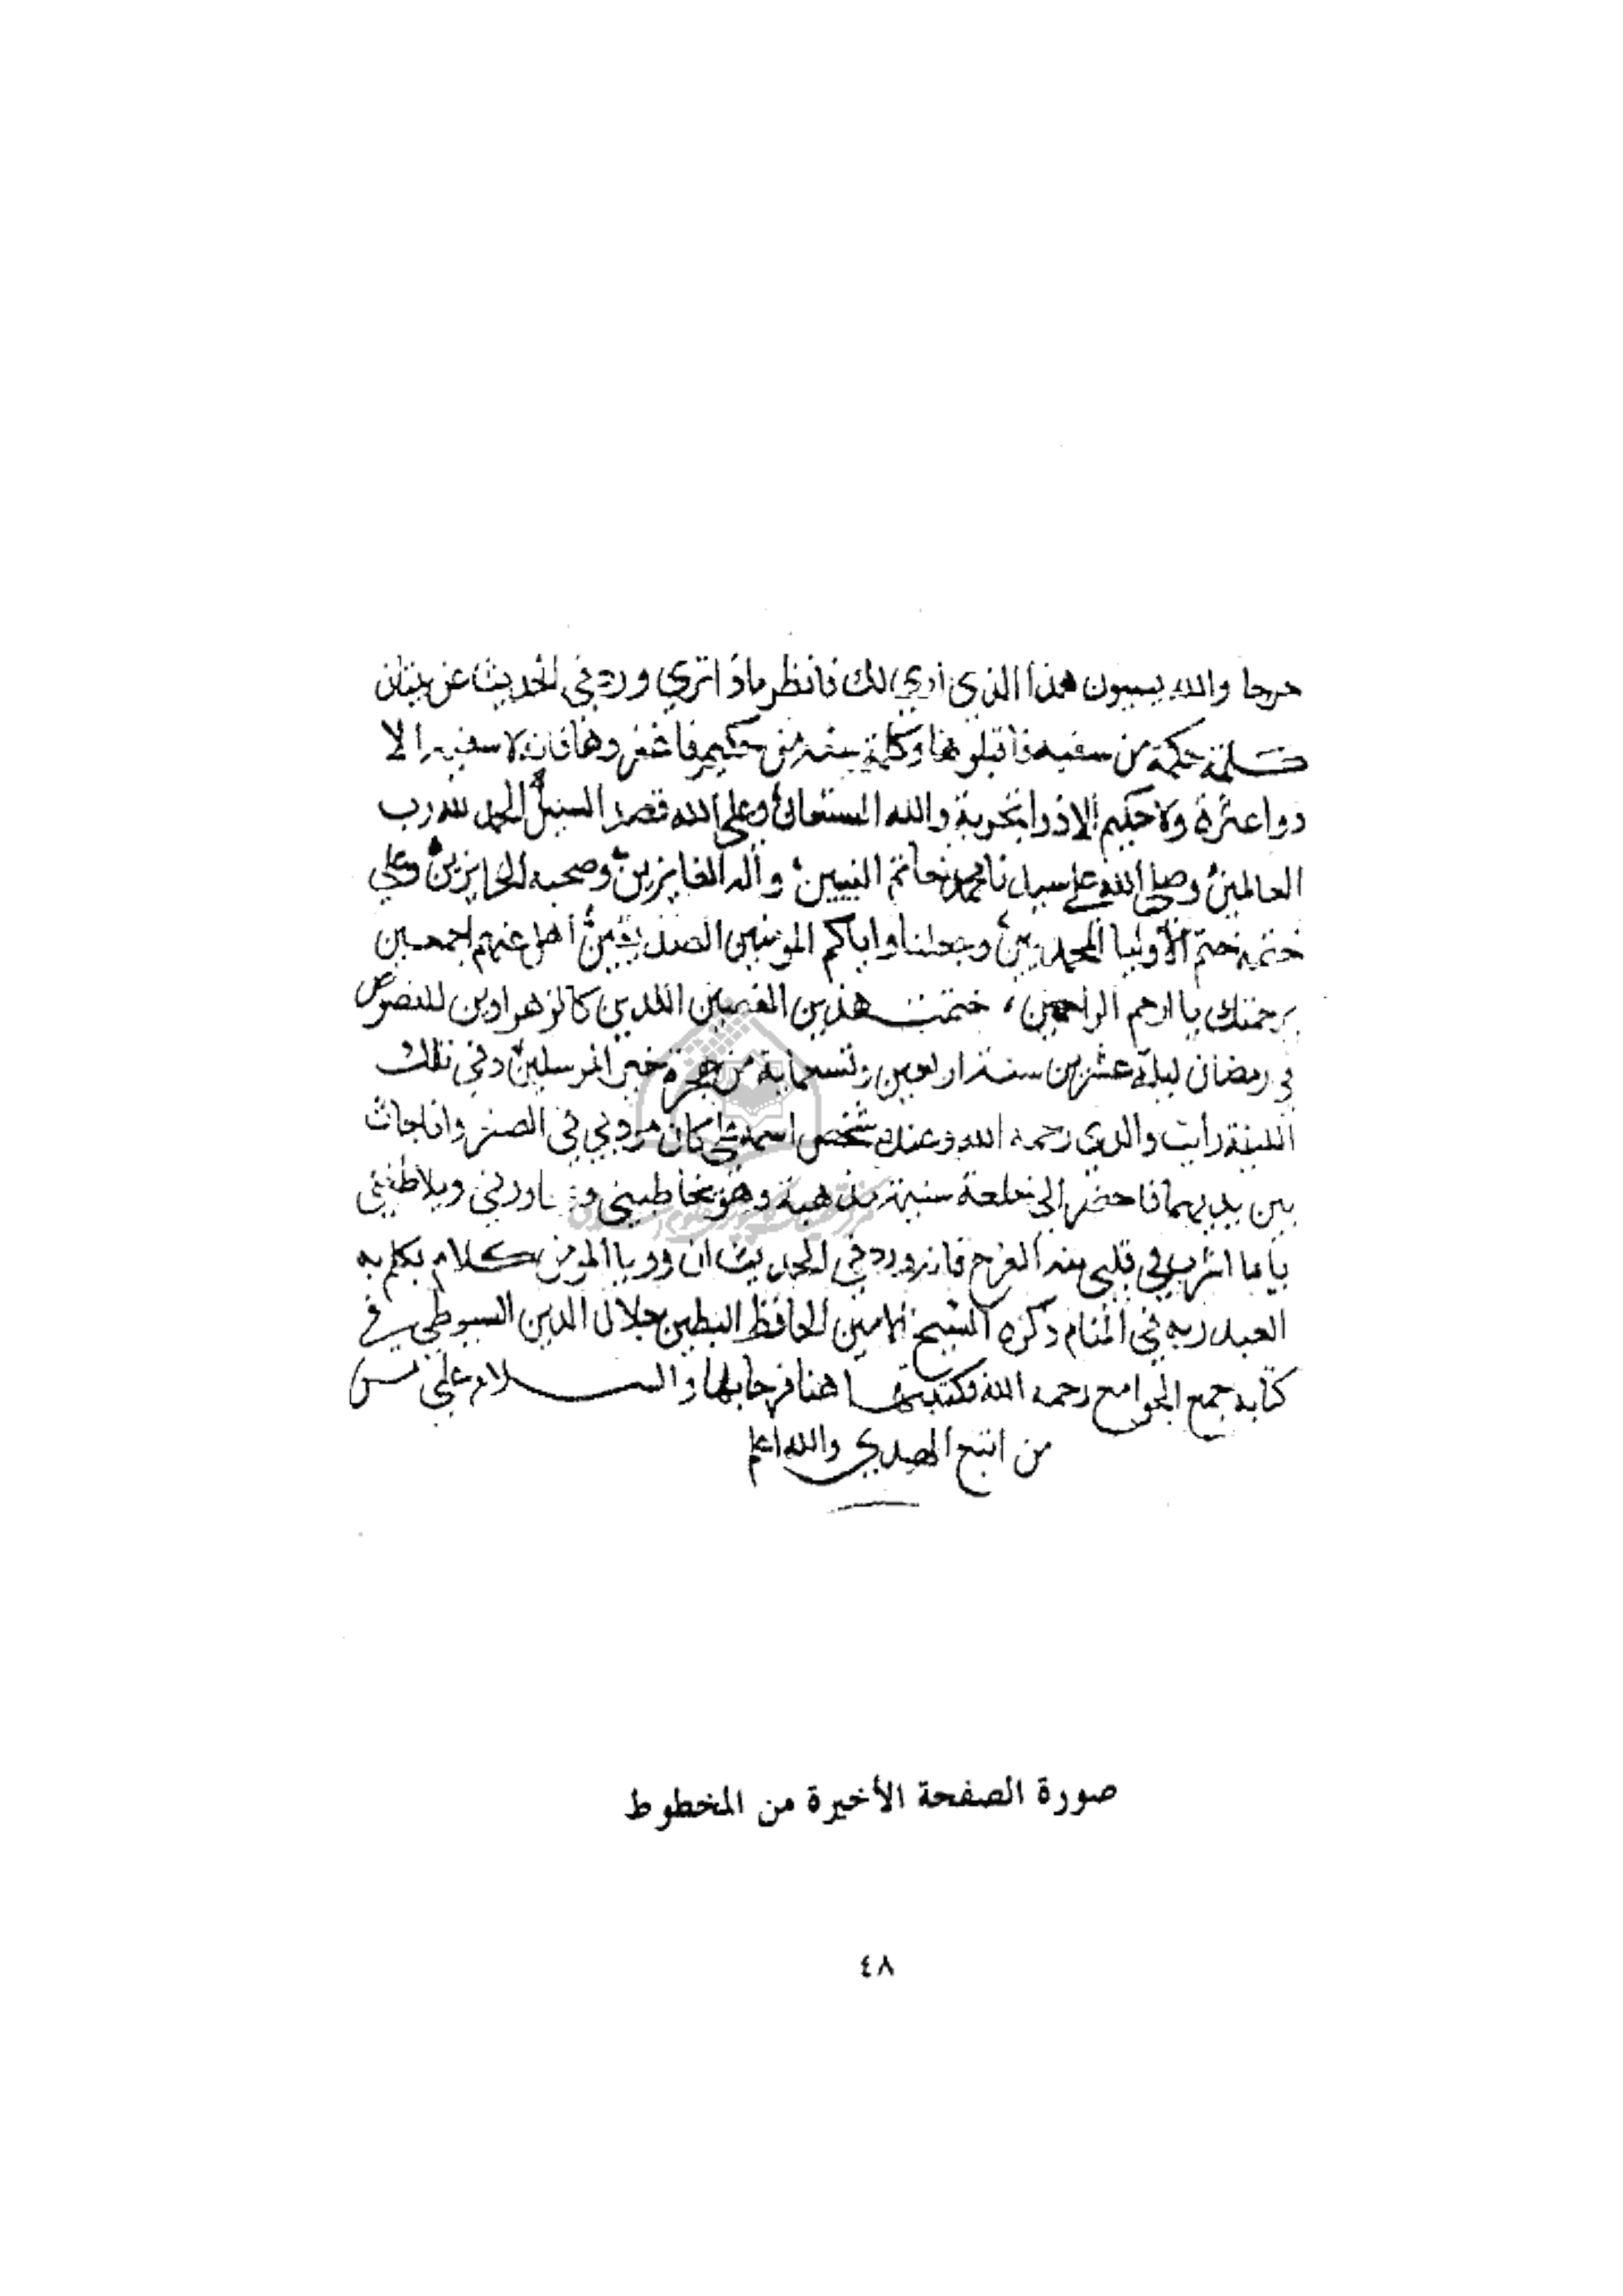 حرجا والله يسبون هذا الذي أري لك فانظر ماذا تري ورد في الحديث
كلمة حكمة من سفيه فاقبلوها وكلمة سفه من حكيم فاغفروها فانه لا سفيه الا
ذوا عثرة ولا حكيم الا ذوا تجربة والله المستعان وعلي الله قصد السبيل الحمد لله رب
العالمين وصلي الله علي سيدنا محمد خاتم النبيين واله الفايزين وصحبه الحايزين وعلي
ختمه ختم الأوليا المحمديين وجعلنا واياكم المومنين الصديقين عنهم اجمعين
برحمتك يا ارحم الراحمين ، ختمت هذين الفصين اللذين كالزهراوين للنصوص
في رمضان ليلة عشرين سنة اربعين وتسعماية من هجرة خير المرسلين وفي تلك
الليلة رايت والدي رحمه الله وعنده شخص اسمه كان في الصغر وانا جاث
بين يديهما فاحضر الي خلعة سنية مذهبة وهو يخاطبني ويلاطفني
في قلبي منه الفرح فانه ورد في الحديث ان رويا المومن كلام يكلم به
العبد ربه في المنام ذكره الشيخ الامين الحافظ البطين جلال الدين السيوطي في
كتابه جمع الجوامع رحمه الله فكتبتها هنا فرحا بها والسلام علي
من اتبع الهدي والله اعلم
صورة الصفحة الأخيرة من المخطوط
٤٨